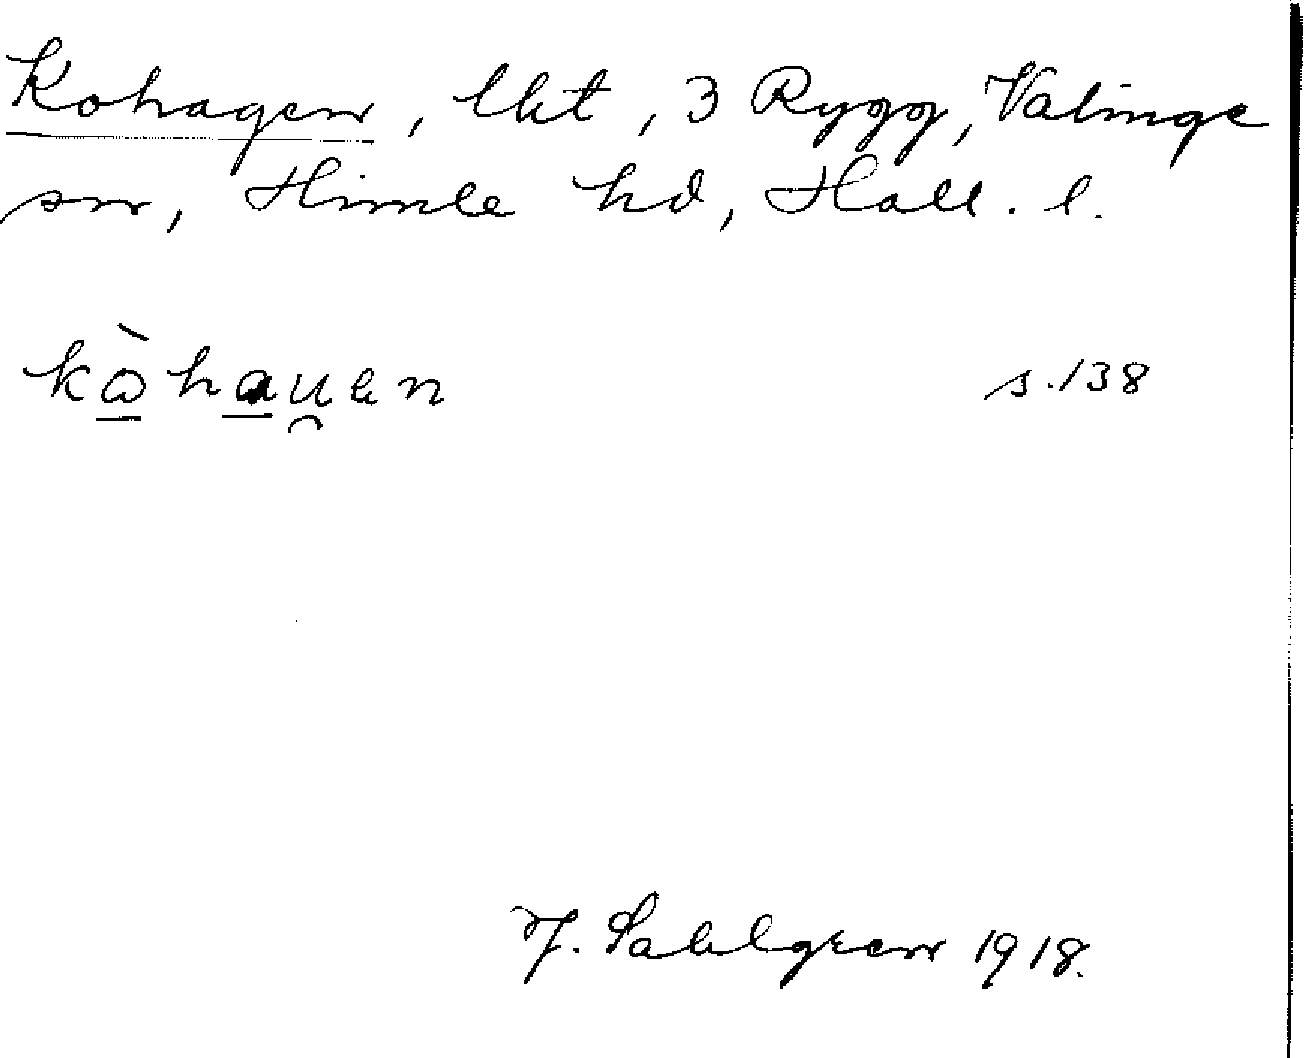 Kohagen, lht, 3 Rygg, Valinge
sn, Himle hd, Hall. l.
kòhau̯en s.138
J. Sahlgren 1918.